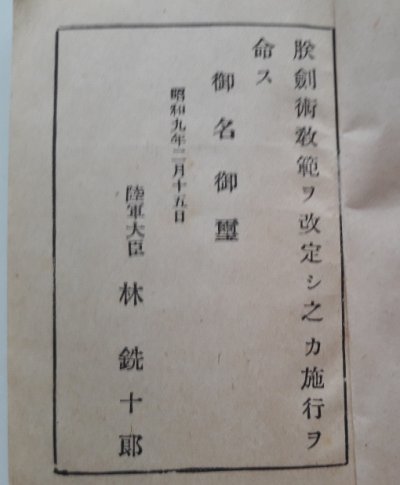 朕劍術敎範ヲ改定シ之カ施行ヲ
命ス
御名御璽
昭和九年二月十五日
陸軍大臣 林 銑十郞